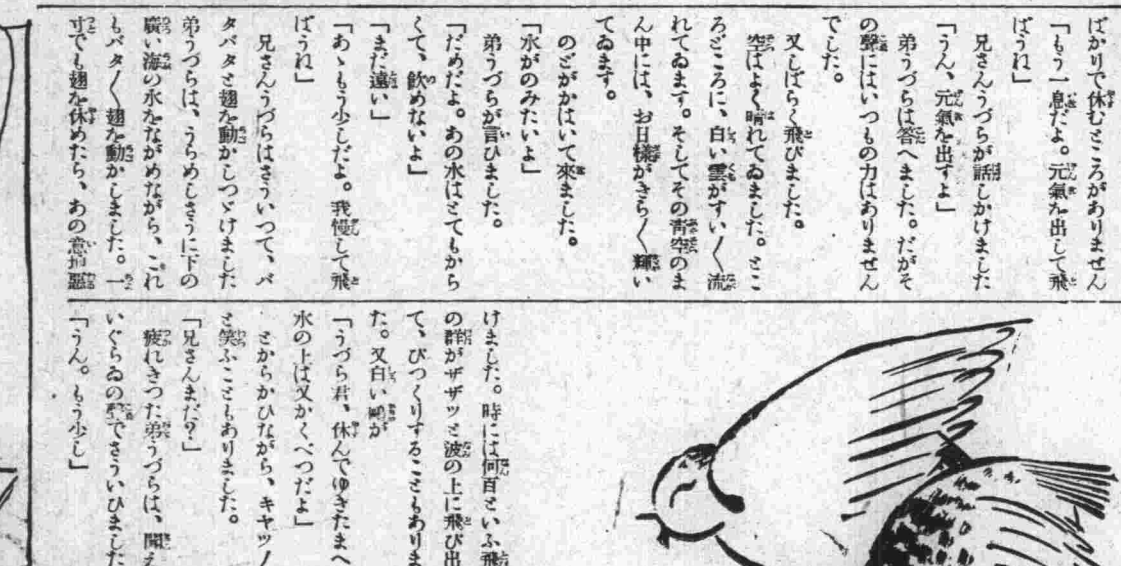 ばかりで休むところがありません
「もう一息だよ。元氣を出して飛
ばうね」
兄さんうづらが話しかけました
「うん、元氣を出すよ」
弟うづらは答へました。だがそ
の聲にはいつもの力はありません
でした。
又しばらく飛びました。
空はよく晴れてゐました。とこ
ろどころに、白い雲がすい〳〵流
れてゐます。そしてその青空のま
ん中には、お日樣がきら〳〵輝い
てゐます。
のどがかはいて來ました。
「水がのみたいよ」
弟うづらが言ひました。
「だめだよ。あの水はとてもから
くて、飲めないよ」
「まだ遠い」
「あゝもう少しだよ。我慢して飛
ばうね」
兄さんうづらはさういつて、バ
タバタと翅を動かしつゞけました
弟うづらは、うらめしさうに下の
廣い海の水をながめながら、これ
もバタ〳〵翅を動かしました。一
寸でも翅を休めたら、あの意地惡
けました。時には何百といふ飛
の群がザザッと波の上に飛び出
て、びつくりすることもありま
た。又白い鷗が
「うづら君、休んでゆきたまへ
水の上は又かくべつだよ」
とからかひながら、キヤツ
と笑ふこともありました。
「兄さんまだ?」
疲れきつた弟うづらは、聞え
いぐらゐの聲でさういひました
「うん。もう少し」